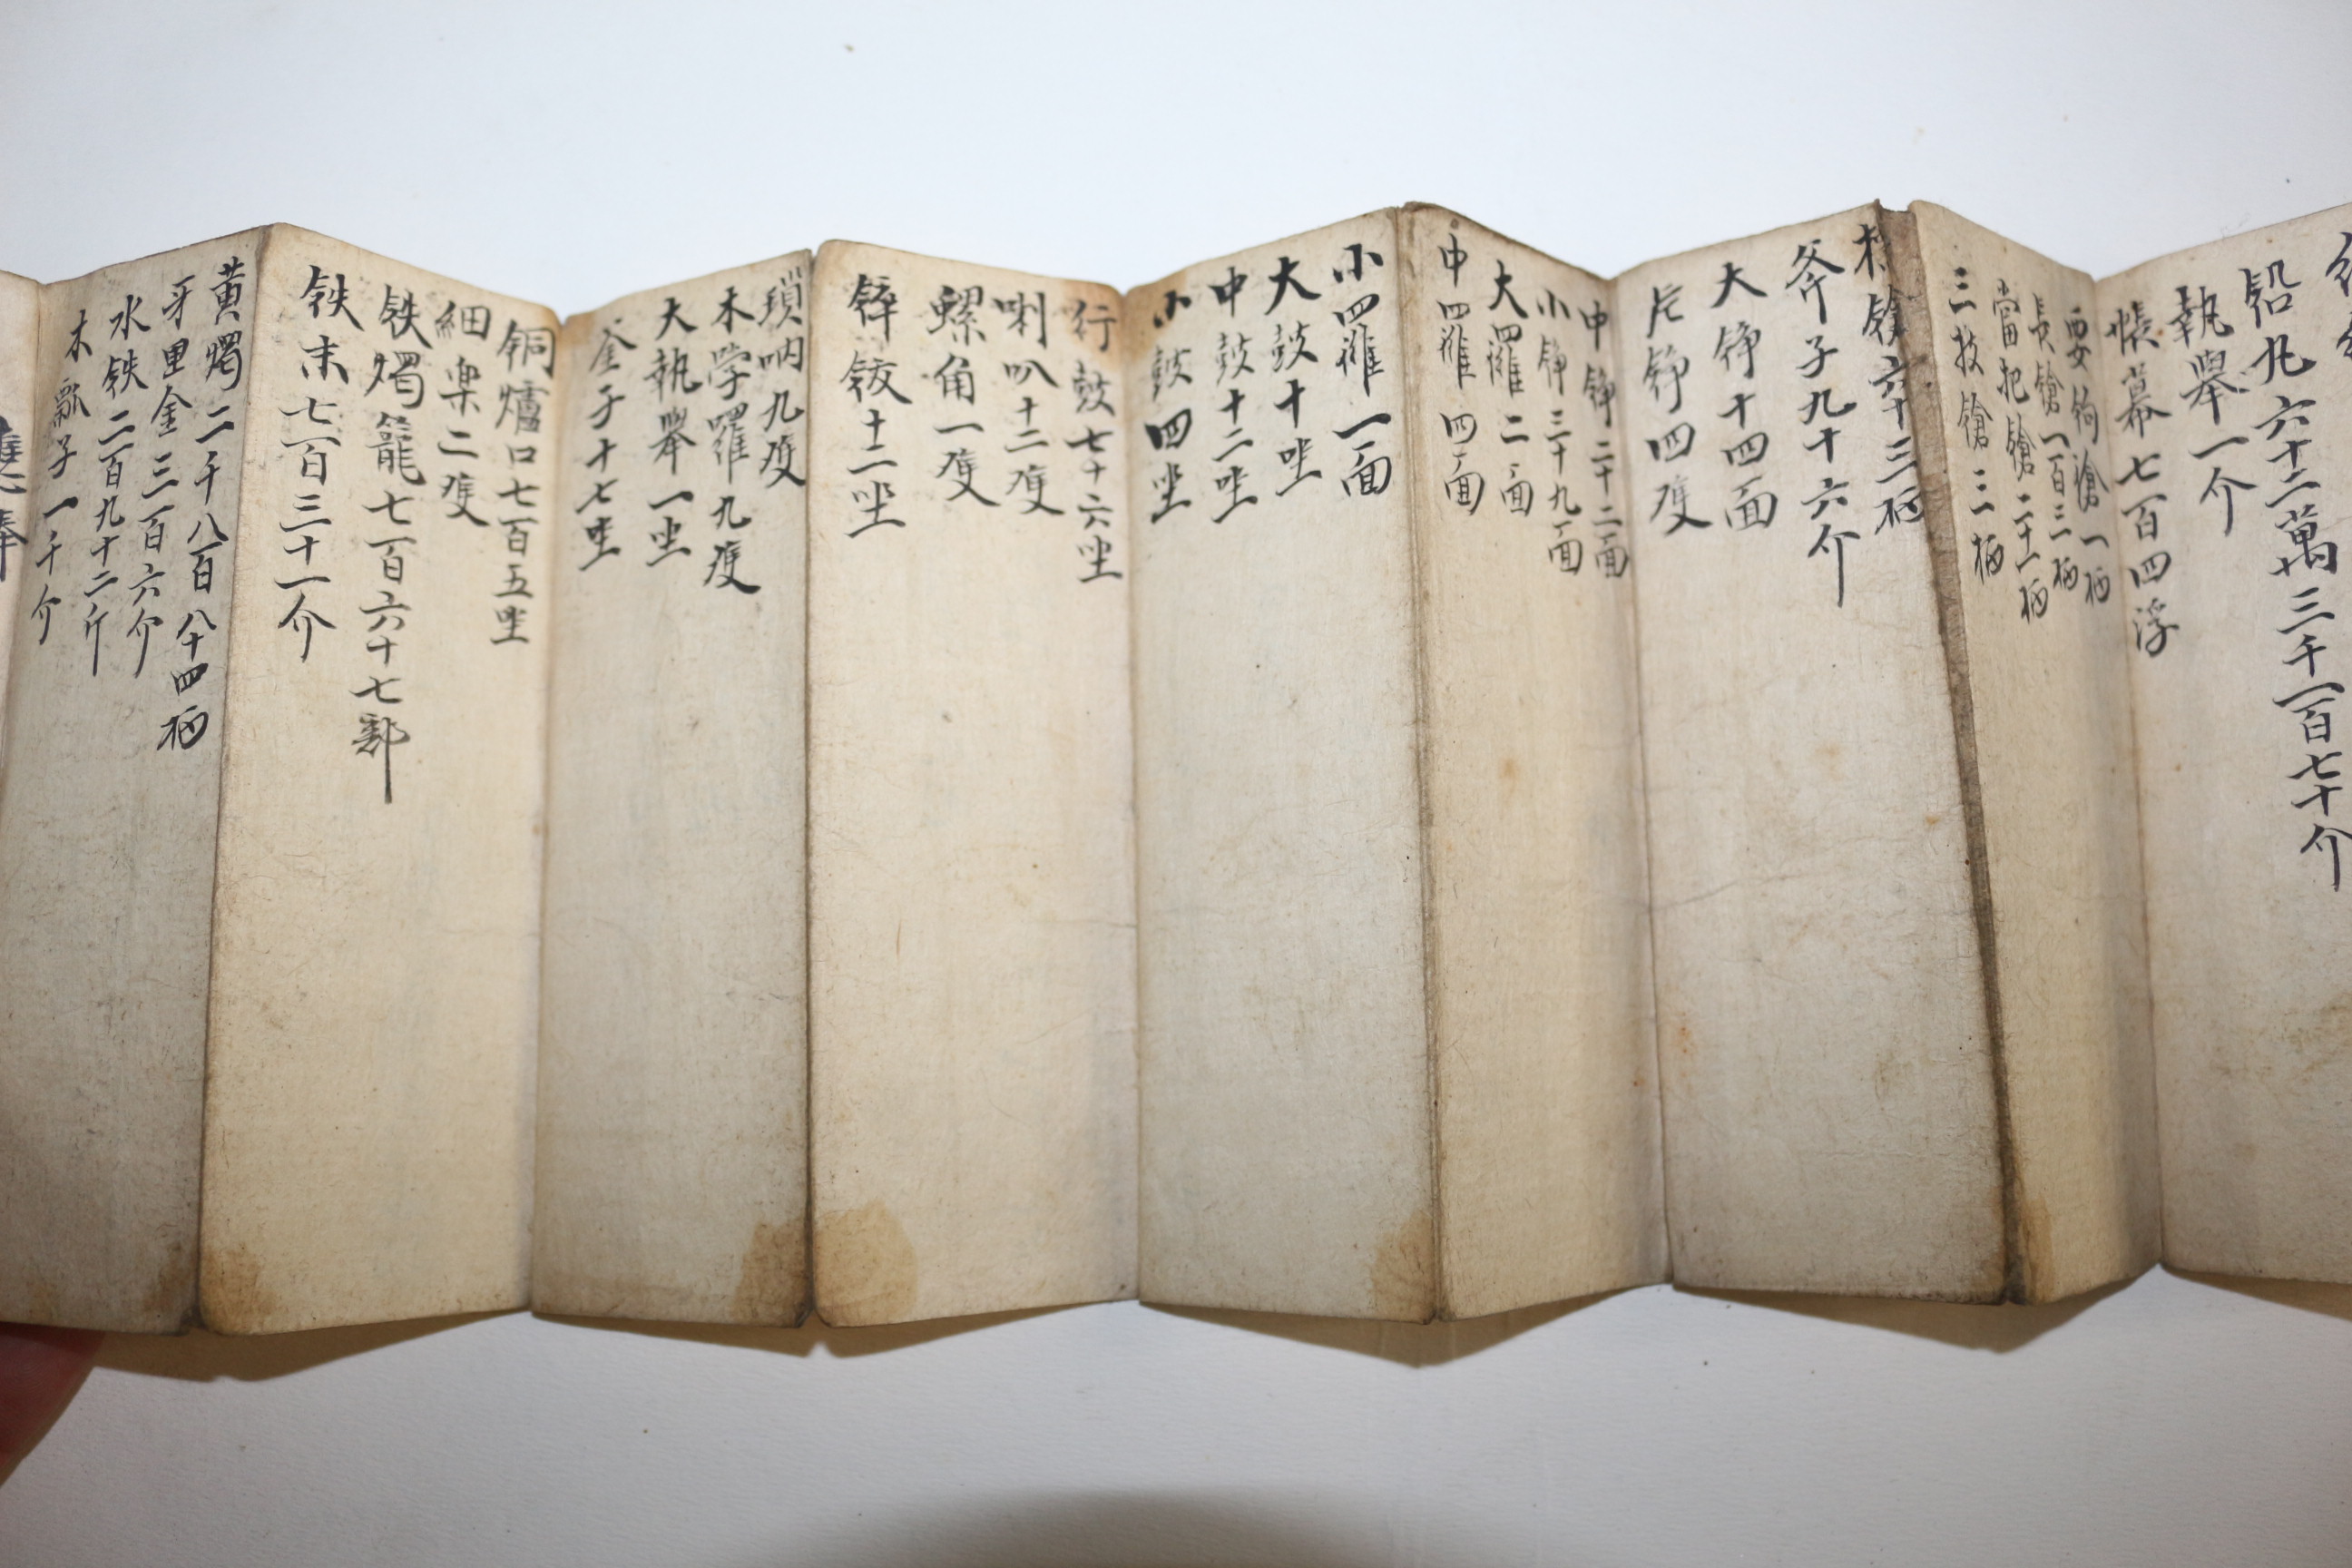 鉛九六十二萬三千一百七十介
執擧一介
帳幕七百四浮
要鉤鎗一柄
長鎗一百三柄
當把鎗二十一柄
三枝鎗三柄
鎗六十三柄
斧子九十六介
大錚十四面
片錚四隻
中錚二十二面
小錚三十九面
大四羅二面
中四羅四面
小四羅一面
大鼓十坐
中鼓十二坐
小鼓四坐
行鼓七十六坐
喇叭十二隻
螺角一隻
鋅鈸十二坐
瑣吶九隻
木学羅九隻
大執擧一坐
釜子十七坐
铜爐口七百五坐
細楽二隻
鉄燭籠七百六十七部
鉄末七百三十一介
黄燭二千八百八十四柄
牙里金三百六介
水鉄二百九十二斤
木瓢子一千介